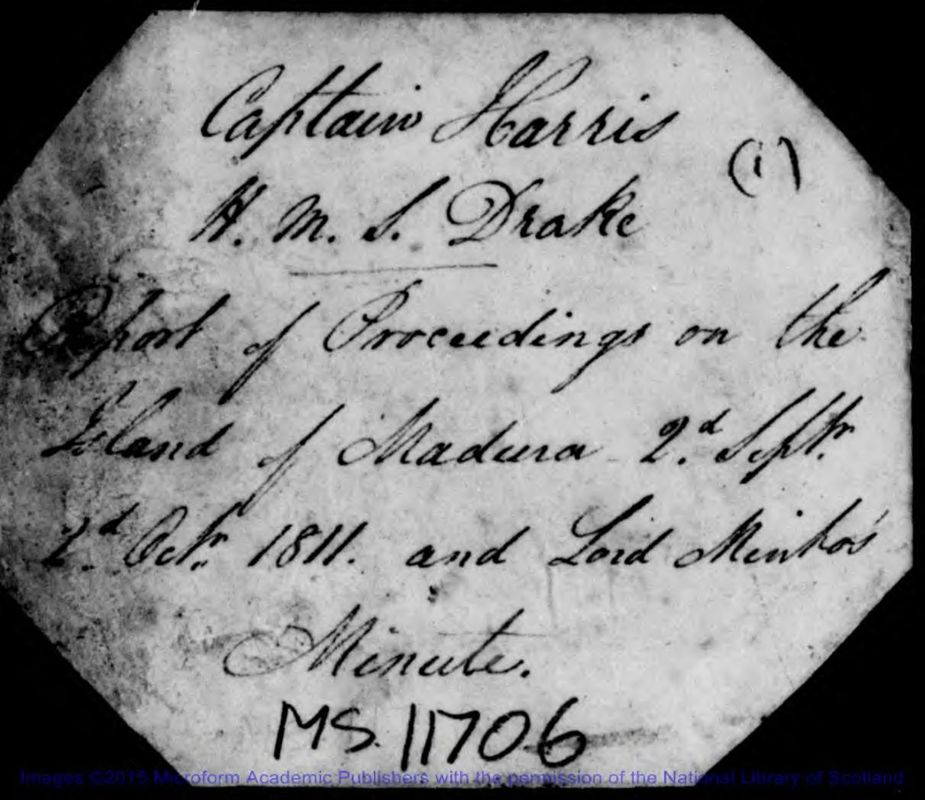 Captain Harris
(1)
H. M. S. Drake
Report of Proceedings on the
Island of Madura 2.d Septr.
2.d Octr. 1811. and Lord Minto's
Minute.
MS. 11706
Images ©2015 Microform Academic Publishers with the permission of the National Library of Scotland